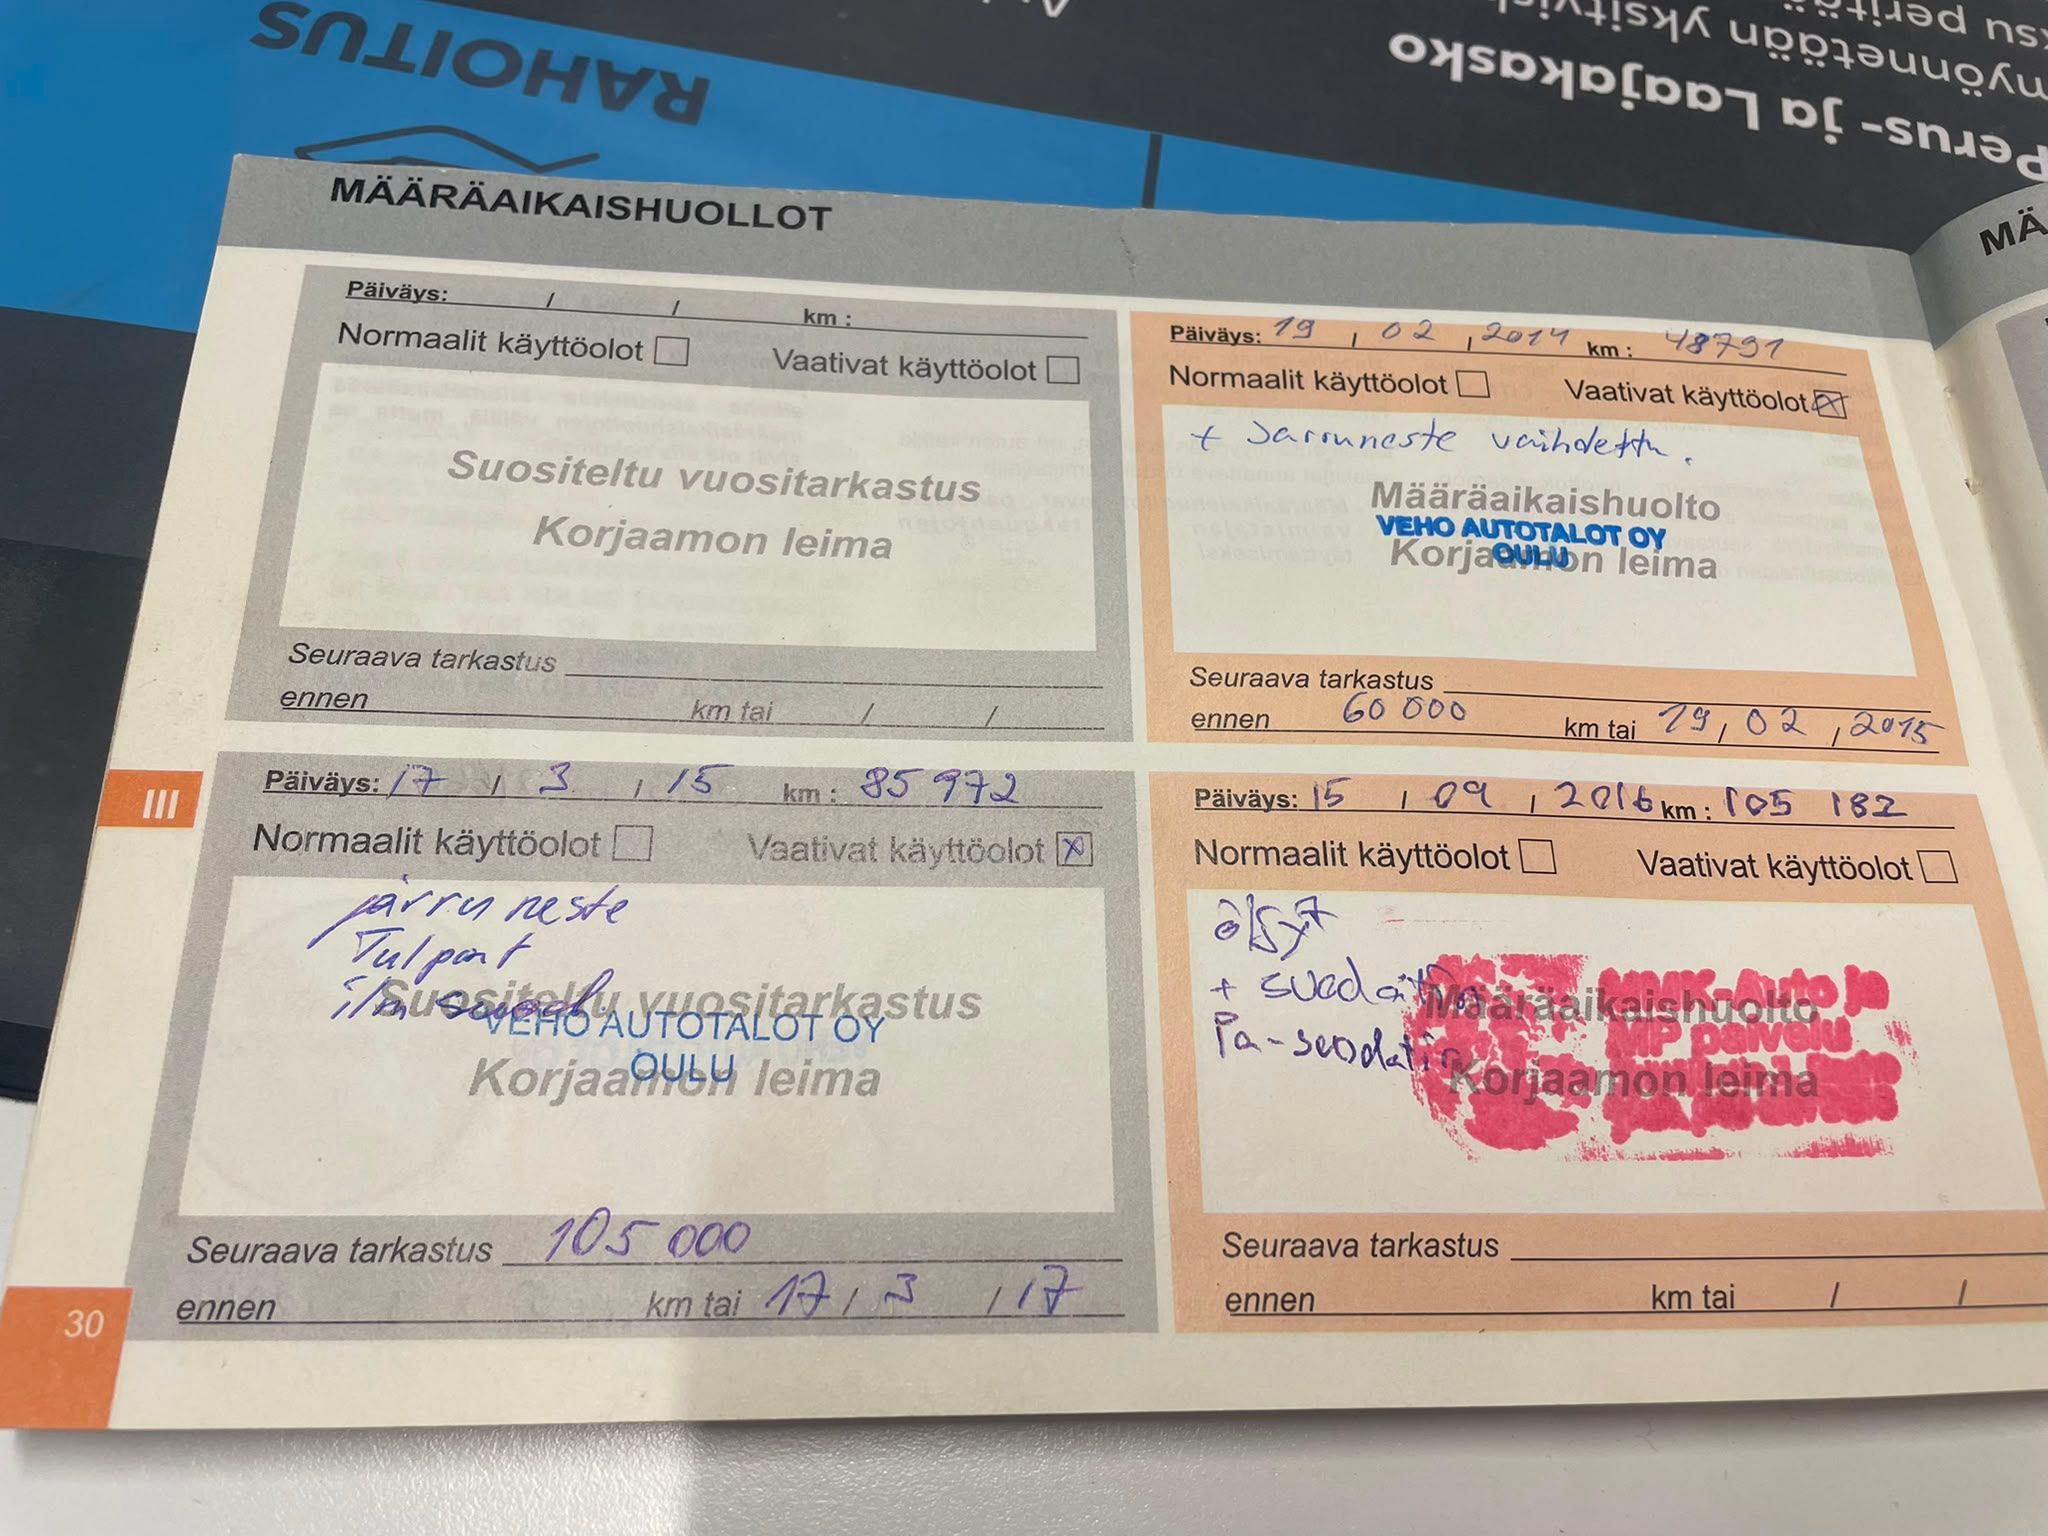 RAHOITUS
Perus- ja Laajakasko
myönnetään
MÄÄRÄAIKAISHUOLLOT
MÄ
Päiväys: / / km :
Normaalit käyttöolot Vaativat käyttöolot
Suositeltu vuositarkastus
Korjaamon leima
Seuraava tarkastus
ennen km tai / /
Päiväys: 19 / 02 / 2014 km : 48791
Normaalit käyttöolot Vaativat käyttöolot X
+ Jarruneste vaihdettu.
Määräaikaishuolto
VEHO AUTOTALOT OY
OULU
Korjaamon leima
Seuraava tarkastus
ennen 60 000 km tai 19 / 02 / 2015
III
Päiväys: 17 / 3 / 15 km : 85 972
Normaalit käyttöolot Vaativat käyttöolot X
jarru neste
Tulpat
ilm suod.
Suositeltu vuositarkastus
VEHO AUTOTALOT OY
OULU
Korjaamon leima
Seuraava tarkastus 105 000
ennen km tai 17 / 3 / 17
Päiväys: 15 / 09 / 2016 km : 105 182
Normaalit käyttöolot Vaativat käyttöolot
öljyt
+ suodatin
Pa-suodatin
Määräaikaishuolto
Auto ja
MP palvelu
Korjaamon leima
Seuraava tarkastus
ennen km tai / /
30